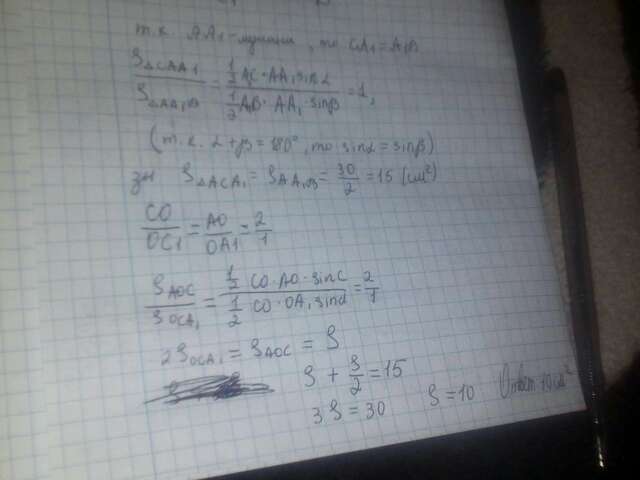 т.к. AA₁-медиана, то CA₁=A₁B
S△CAA₁ / S△AA₁B = ½ AC·AA₁ sinα / ½ AB·AA₁·sinβ = 1,
(т.к. α+β=180°, то sinα=sinβ)
зн S△ACA₁ = S AA₁B = 30/2 = 15 (см²)
CO/OC₁ = AO/OA₁ = 2/1
S AOC / S OCA₁ = ½ CO·AO·sinC / ½ CO·OA₁ sinα = 2/1
2S OCA₁ = S AOC = S
S + S/2 = 15
3S = 30 S = 10 Ответ 10 см²